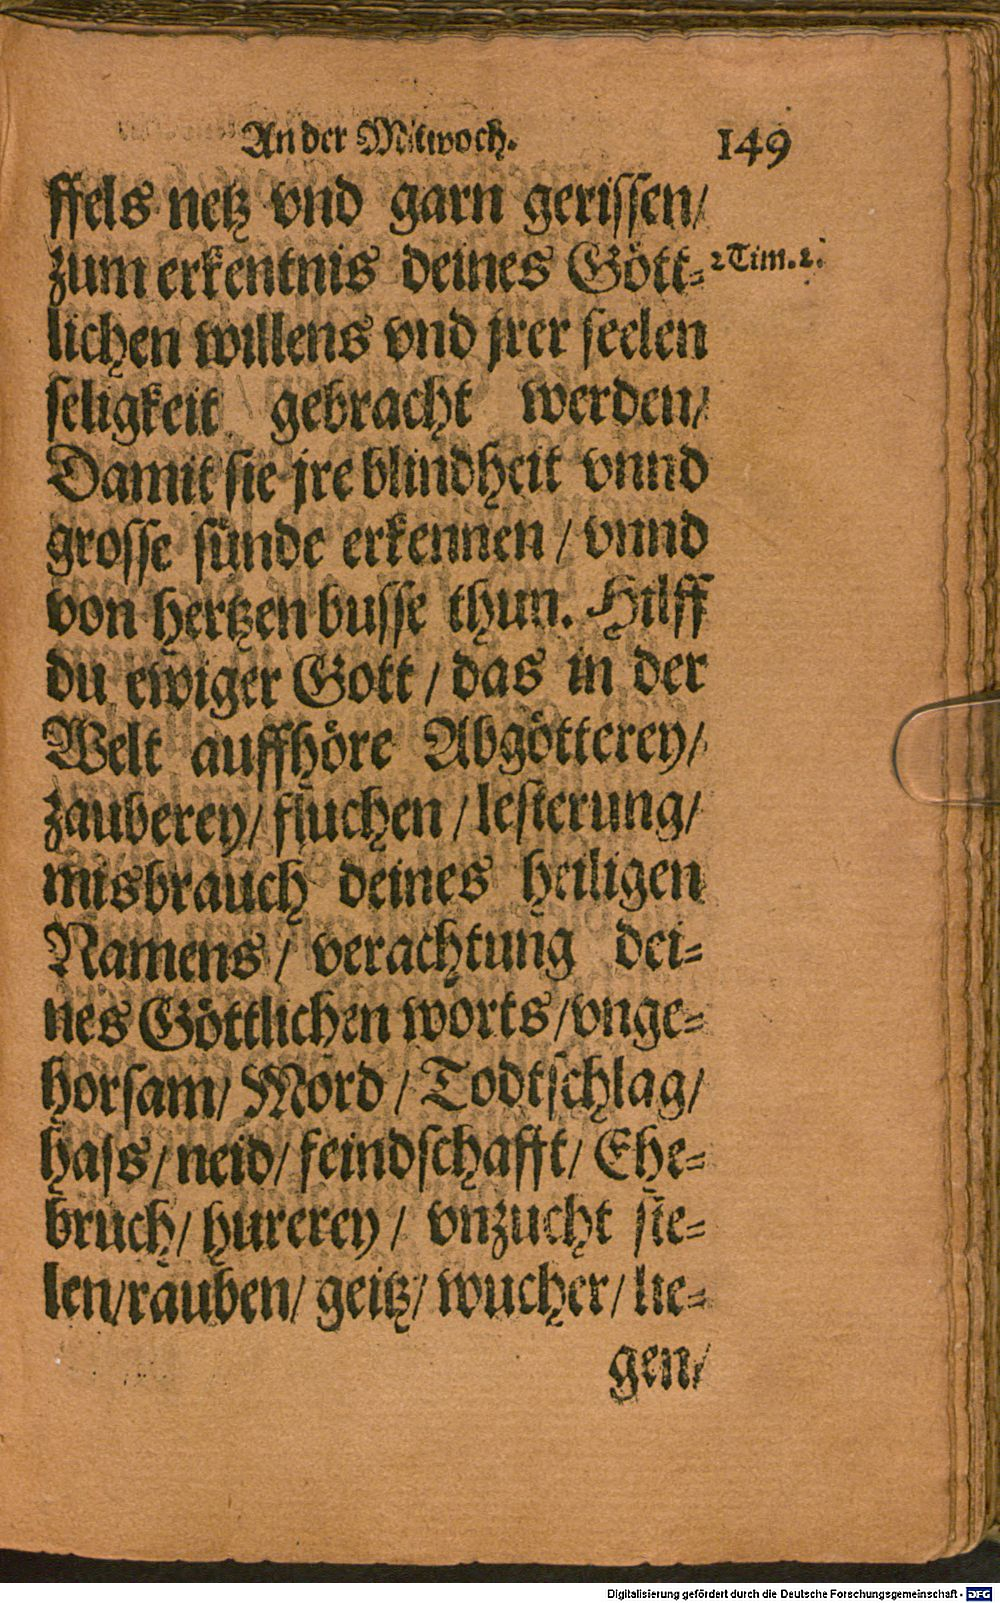 An der Mitwoch. 149
ffels netz vnd garn gerissen/
zum erkentnis deines Gött= 2 Tim. 2.
lichen willens vnd jrer seelen
seligkeit gebracht werden/
Damit sie jre blindheit vnnd
grosse sünde erkennen / vnnd
von hertzen busse thun. Hilff
du ewiger Gott / das in der
Welt auffhöre Abgötterey/
zauberey/ fluchen / lesterung/
misbrauch deines heiligen
Namens / verachtung dei=
nes Göttlichen worts /vnge=
horsam/ Mord / Todtschlag/
hass / neid/ feindschafft/ Ehe=
bruch/ hurerey / vnzucht ste=
len/rauben/ geitz/ wucher/ lie=
gen/
Digitalisierung gefördert durch die Deutsche Forschungsgemeinschaft - DFG